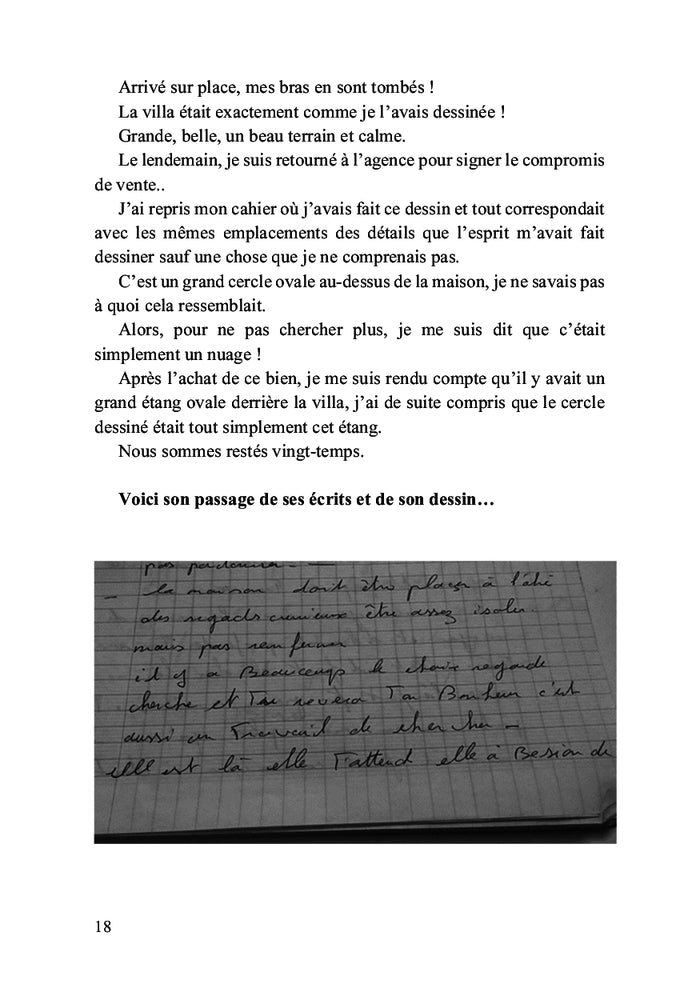 Arrivé sur place, mes bras en sont tombés !
La villa était exactement comme je l’avais dessinée !
Grande, belle, un beau terrain et calme.
Le lendemain, je suis retourné à l’agence pour signer le compromis
de vente..
J’ai repris mon cahier où j’avais fait ce dessin et tout correspondait
avec les mêmes emplacements des détails que l’esprit m’avait fait
dessiner sauf une chose que je ne comprenais pas.
C’est un grand cercle ovale au-dessus de la maison, je ne savais pas
à quoi cela ressemblait.
Alors, pour ne pas chercher plus, je me suis dit que c’était
simplement un nuage !
Après l’achat de ce bien, je me suis rendu compte qu’il y avait un
grand étang ovale derrière la villa, j’ai de suite compris que le cercle
dessiné était tout simplement cet étang.
Nous sommes restés vingt-temps.
Voici son passage de ses écrits et de son dessin…
pas
– la maison doit être placer à
des regards curieux être assez isoler
mais pas renfermer
il y a Beaucoup le choix regarde
cherche et Tu Ton Bonheur c'est
aussi un Travail de chercher –
elle est là elle T'attend elle à Besion de
18